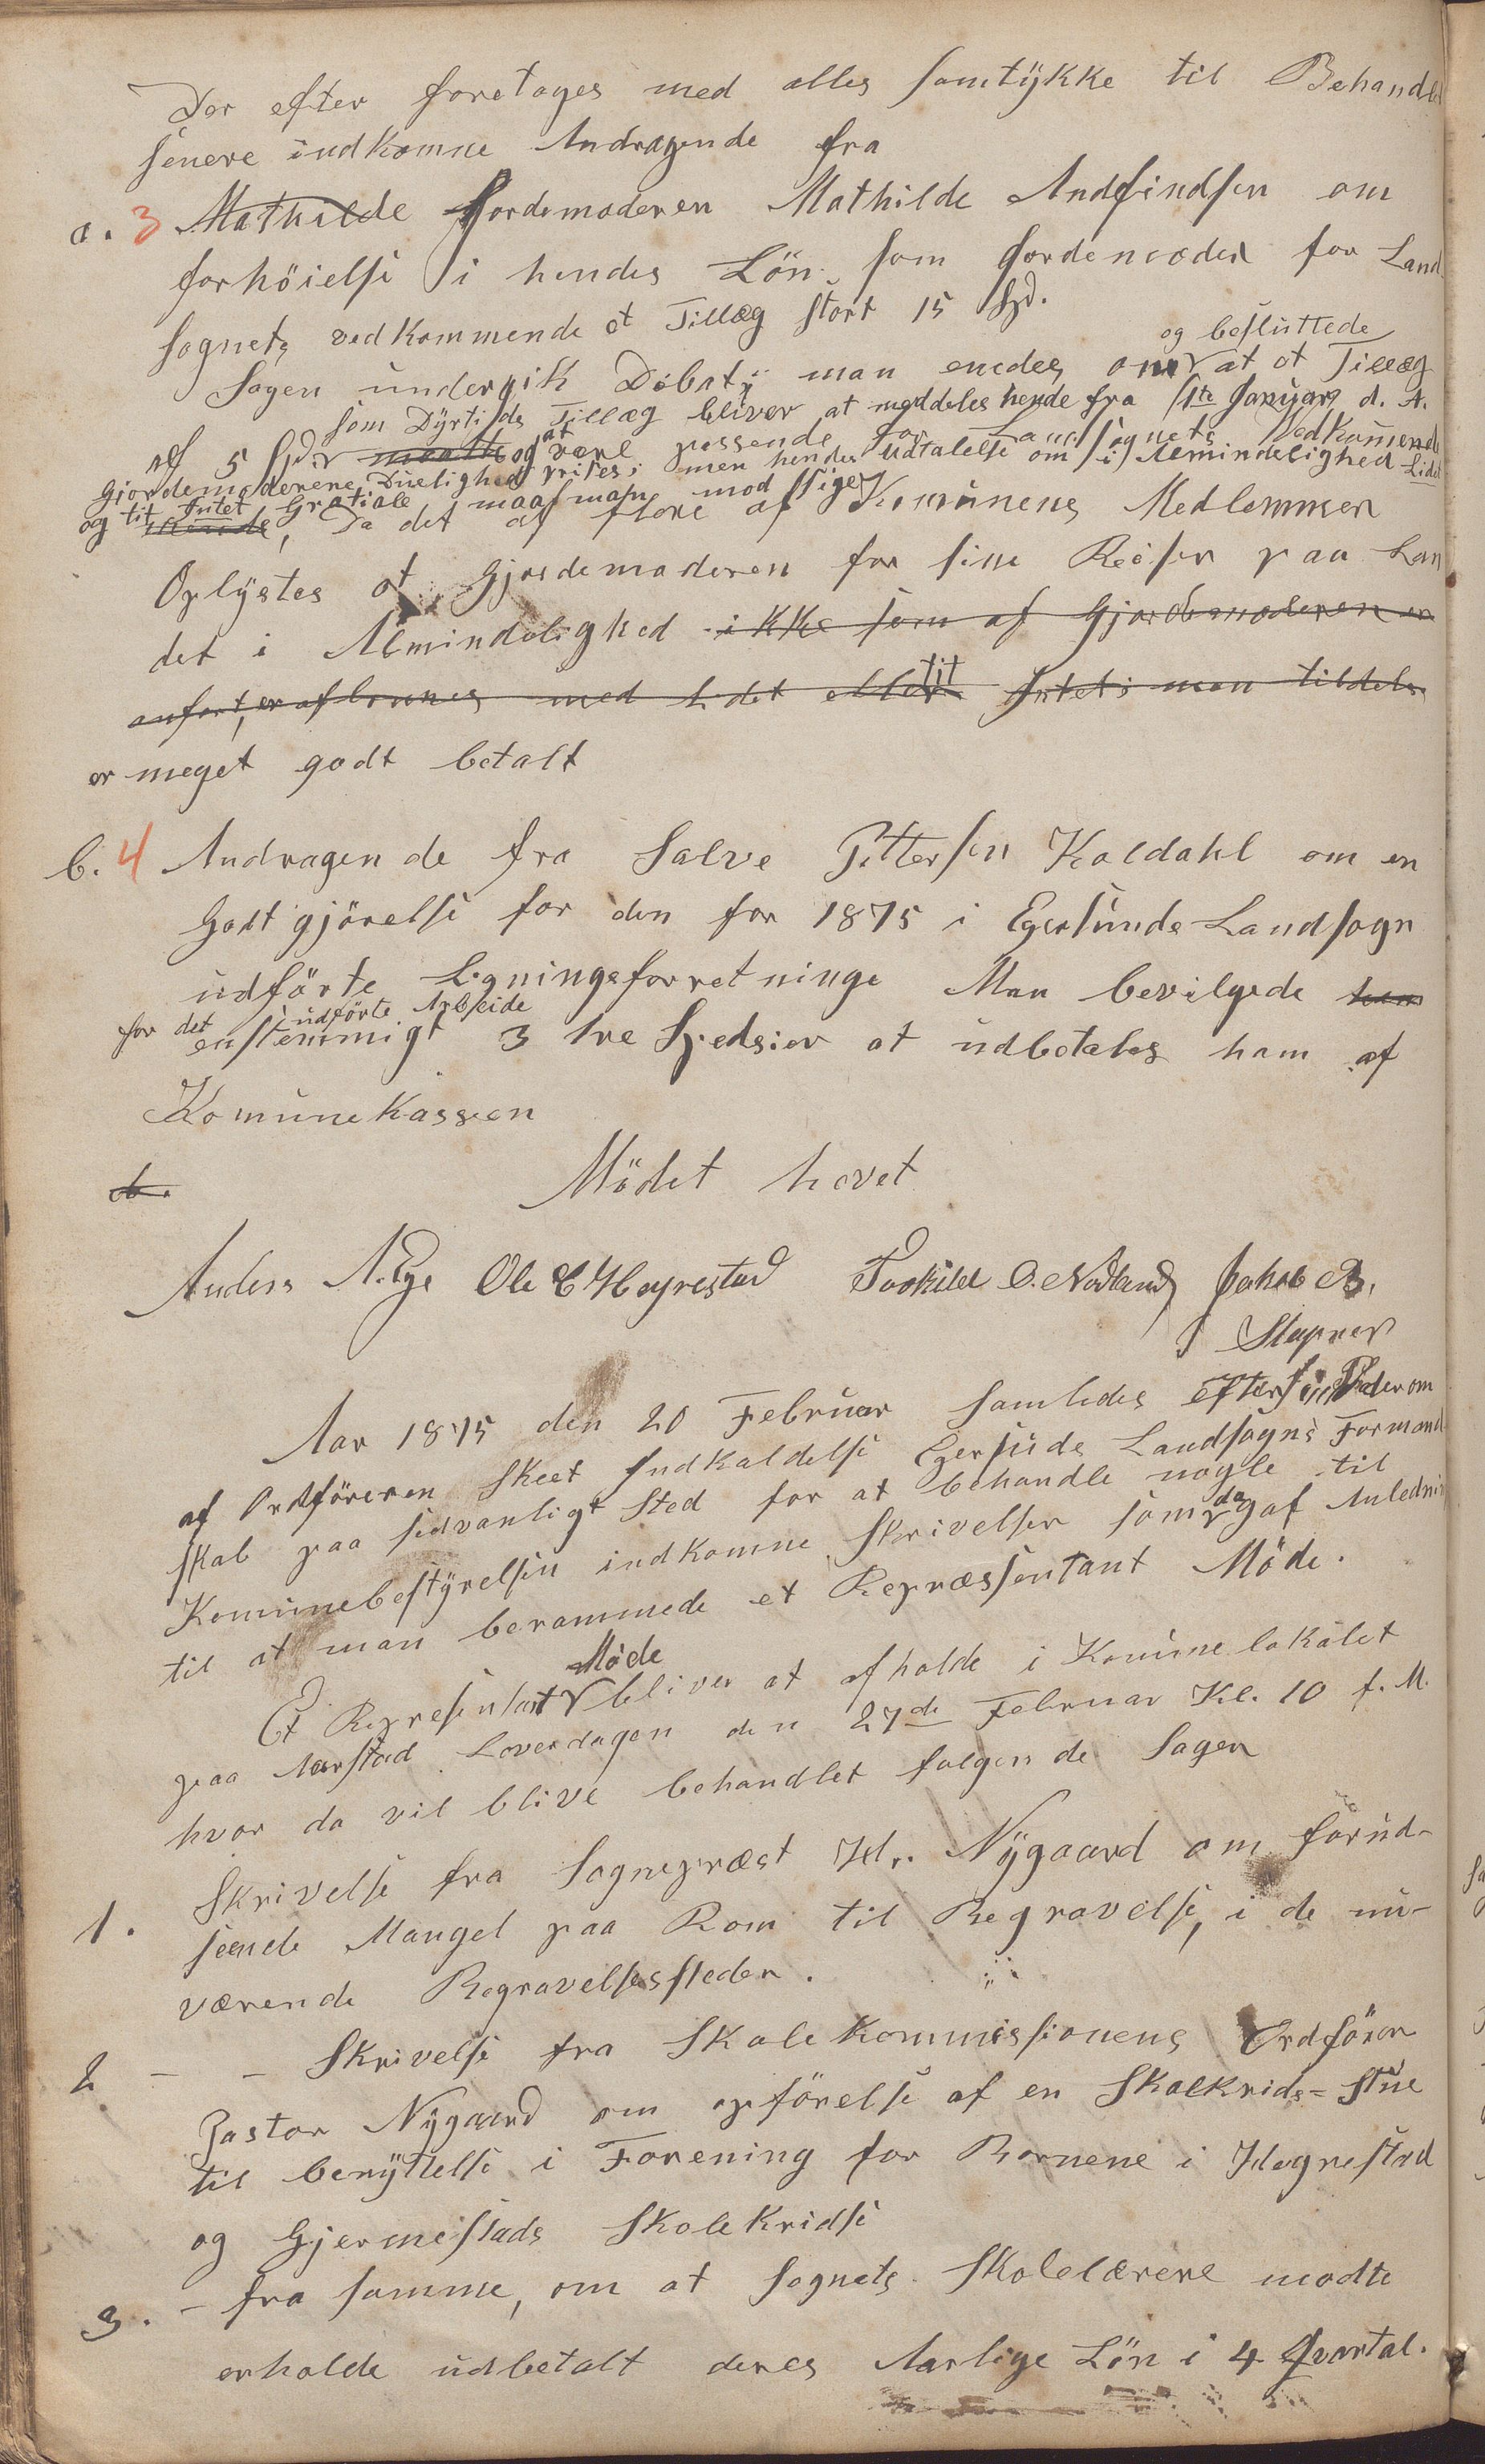 Der efter foretages med alles samtÿkke til Behandl
senere indkomne Andragende fra
a. 3 Mathilde Jordemoderen Mathilde Andfindsen om
forhöielse i hendes Lön som Jordemoder for Land
sognets vedkommende et Tillæg stort 15 Spd.
og besluttede
Sagen undergik Debat; man enedes om at et Tillæg
som Dÿrtids Tillæg bliver at meddeles hende fra 1ste Januar d. A.
af 5 Spd. maatte og at være passende for Landsognets Vedkommende
Gjordemoderene Duelighed prises; men hendes Udtalelse om i Almindelighed Lidet
og tit Intet Gratiale maa man mod sige
, Da det af flere af Komunens Medlemmer
Oplÿstes at Gjordemoderen for sine Reiser paa Lan
det i Almindelighed ikke som af Gjordemoderen er
anført, er aflønnes med lidet eller tit Intet; man tildels
er meget godt betalt
b. 4 Andragende fra Salve Pettersen Koldahl om en
Godtgjörelse for den for 1875 i Egersunds Landsogn
udförte Ligningsforretninge Man bevilgede ham
for det udförte Arbeide
enstemmigt 3 tre Spedsier at udbetales ham af
Komunekassen
b.
Mödet hævet
Anders A. Ege Ole E Hegrestad Torkild O. Nodland Jakob B.
Stapnes
Aar 1875 den 20 Februar samledes efter
af Ordföreren skeet Indkaldelse Egersuds Landsogns Formand
skab paa sedvanligt Sted for at behandle nogle til
Komunebestÿrelsen indkomne Skrivelser som da gaf Anledni
til at man berammede et Repræssentant Möde.
Möde
Et Represintant bliver at afholde i Komunelokalet
paa Aarstad Loverdagen den 27de Februar Kl. 10 f. M.
hvor da vil blive behandlet følgende Sager
1. Skrivelse fra Sognepræst Hr. Nÿgaard om forud-
seende Mangel paa Rom til Begravelse, i de nu-
værende Begravelsessteder.
2 - - Skrivelse fra Skolekommissionens Ordförer
Pastor Nÿgaard om opförelse af en Skolekrids-stue
til benÿttelse i Forening for Bornene i Hegrestad
og Gjermestads Skolekridse
3. - fra samme, om at Sognets Skolelærere modte
erholde udbetalt deres Aarlige Lön i 4 Qvartal.